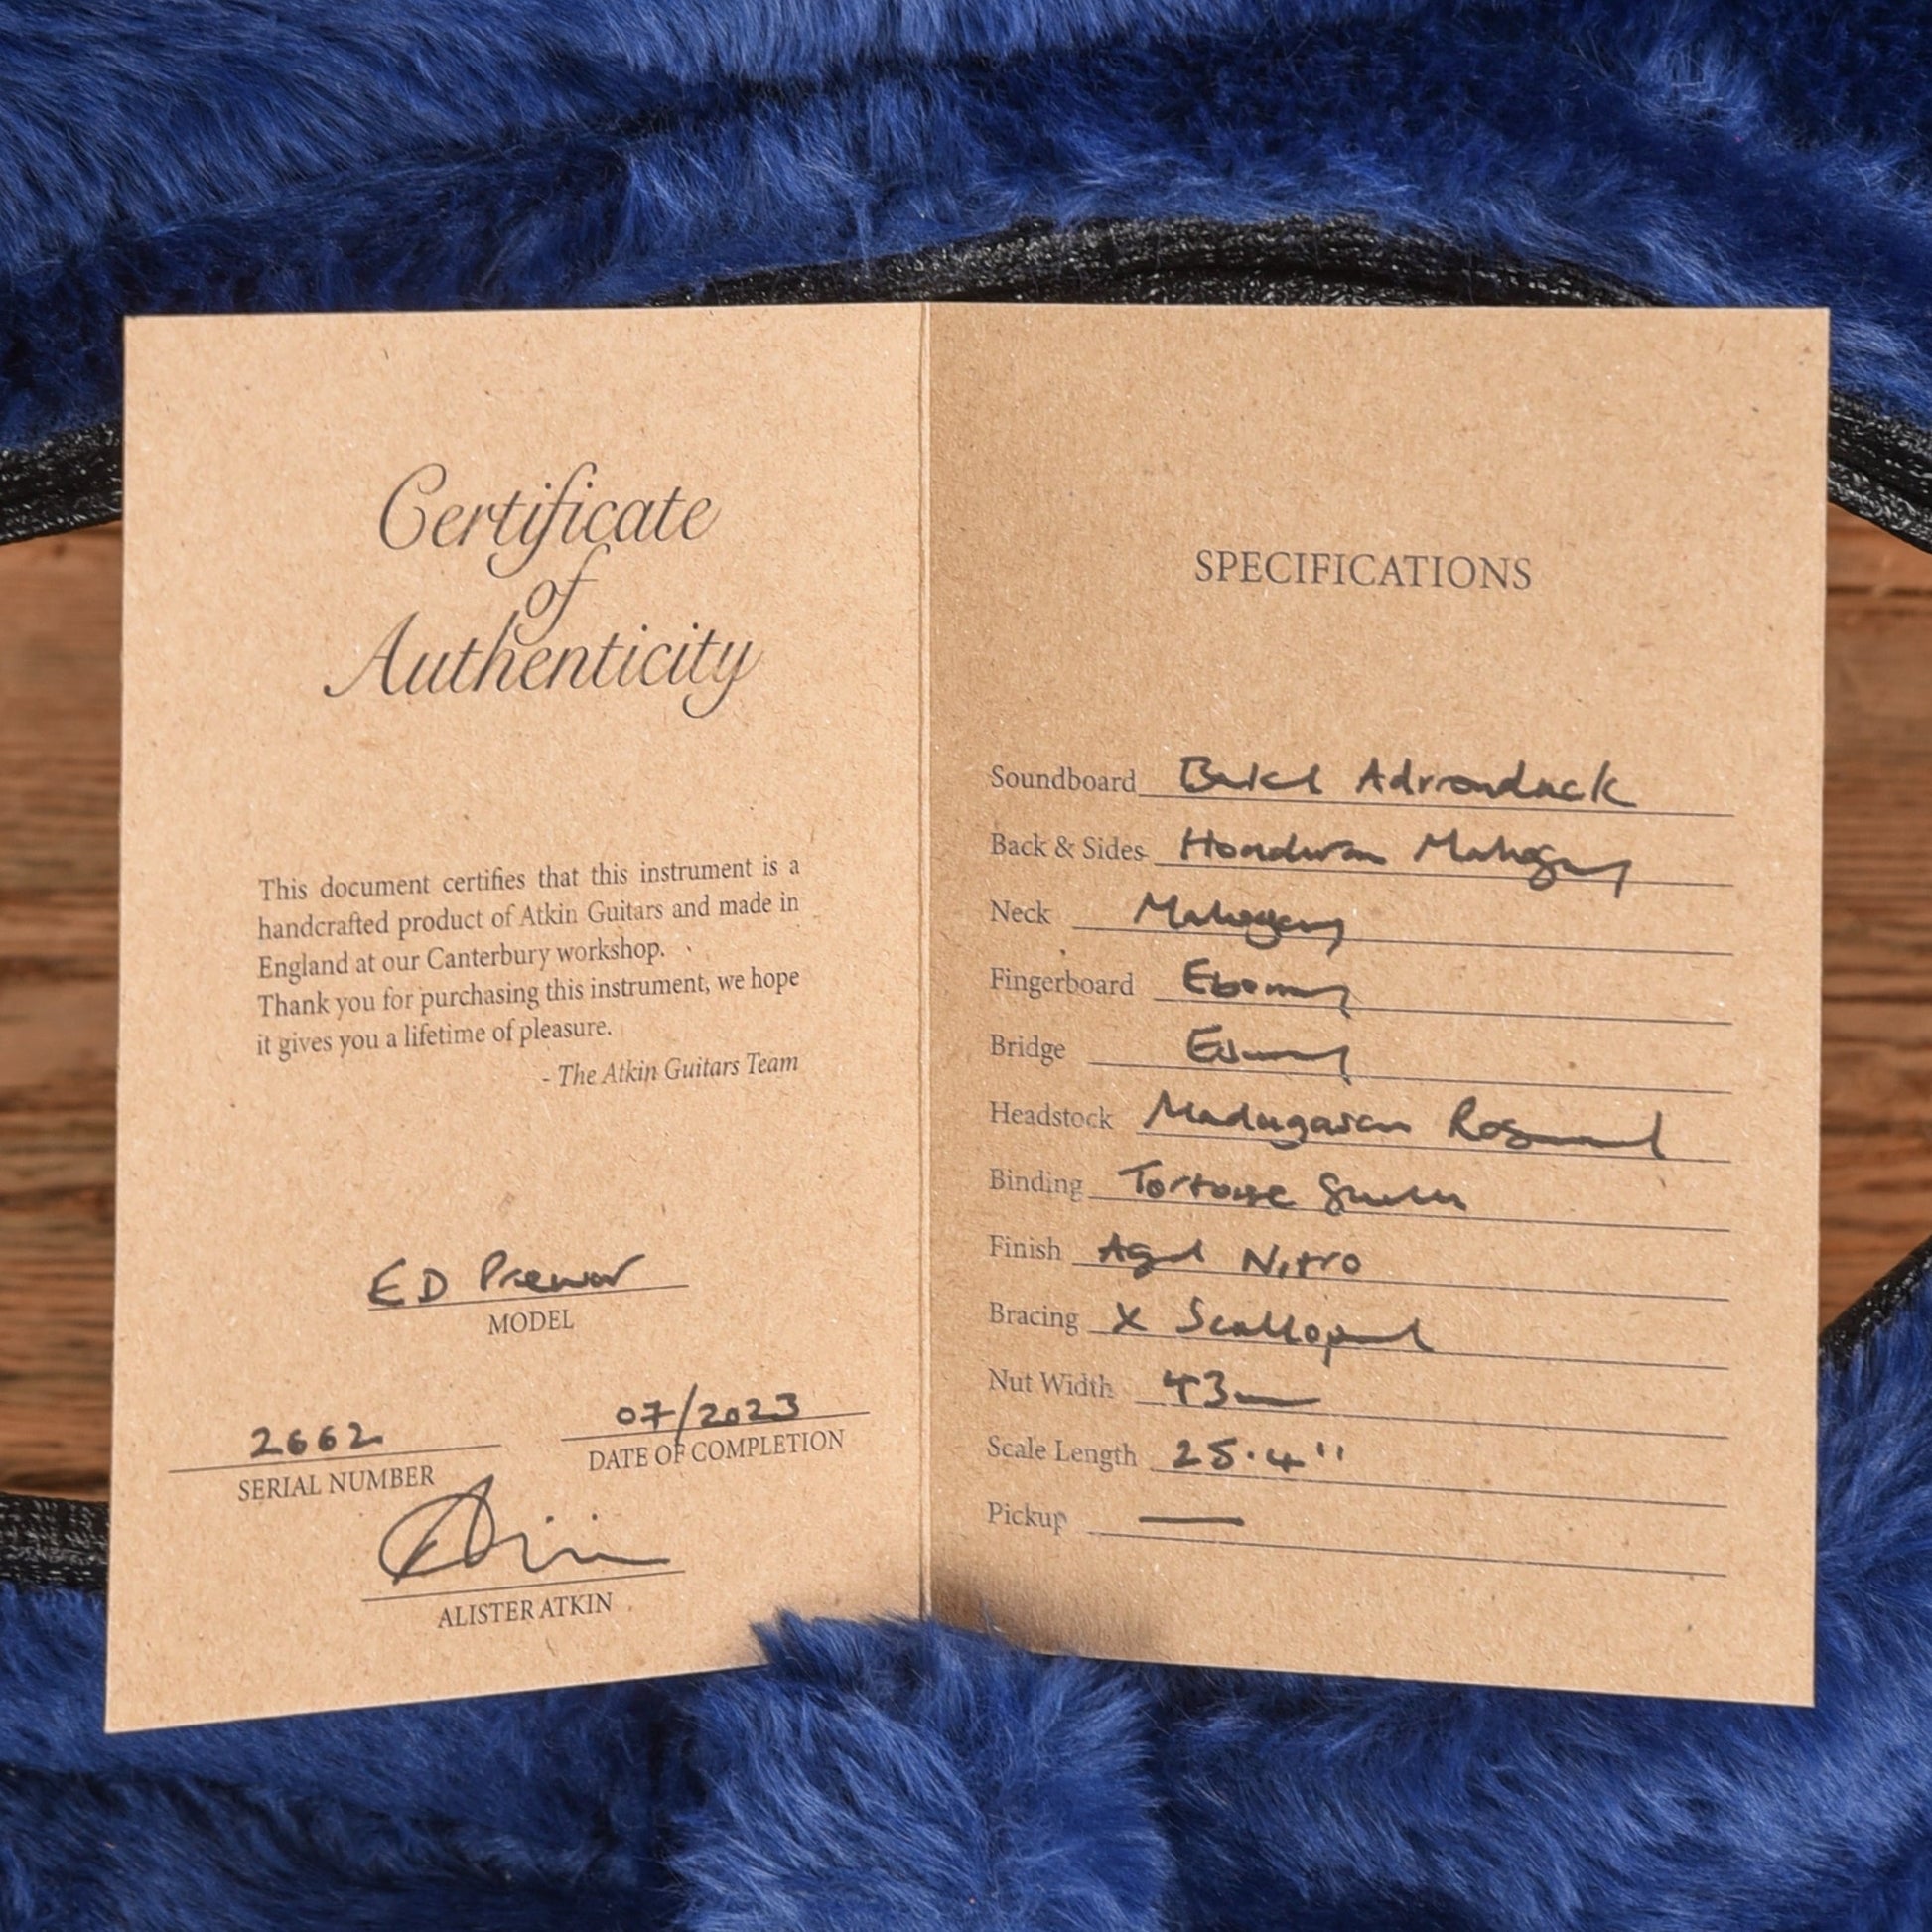 Certificate
of
Authenticity
This document certifies that this instrument is a
handcrafted product of Atkin Guitars and made in
England at our Canterbury workshop.
Thank you for purchasing this instrument, we hope
it gives you a lifetime of pleasure.
- The Atkin Guitars Team
ED Prewar
MODEL
2662
SERIAL NUMBER
07/2023
DATE OF COMPLETION
ALISTER ATKIN
SPECIFICATIONS
Soundboard Baked Adirondack
Back & Sides Honduran Mahogany
Neck Mahogany
Fingerboard Ebony
Bridge Ebony
Headstock Madagascan Rosewood
Binding Tortoise
Finish Aged Nitro
Bracing X Scalloped
Nut Width 43mm
Scale Length 25.4"
Pickup —